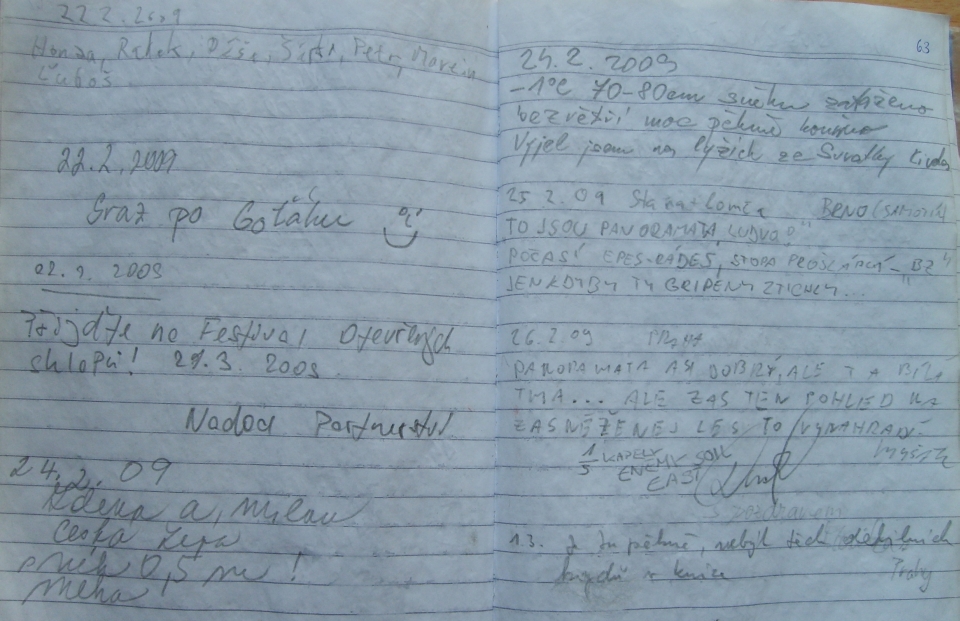 22.2.2009
Honza, Radek, Petr, Marcin
Luboš
22.2.2009
Sraz po Goťáku
22.2.2009
Přijďte na Festival Otevřených
sklepů! 2009
Nadace Partnerství
24.2.09
Zdena a Milan
Česká Lípa
sníh 0,5 m!
mlha
63
24.2.2009
-1°C 70-80cm sněhu zataženo
bezvětří moc pěkně
Vyjel jsem na lyžích ze Svratky
25 2.09 BRNO
TO JSOU PANORAMATA, LUDVO!"
POČASÍ EPES-RÁDES, STOPA
JEN KDYBY TY GRIPENY ZTICHLY...
26.2.09
PANORAMATA ASI DOBRÝ, ALE TA BÍLÁ
TMA... ALE ZAS TEN POHLED NA
ZASNĚŽENEJ LES TO VYNAHRADÍ.
1/5 KAPELY
ENEMY SOIL
EAST
S pozdravem
1.3. Je tu pěkně, nebýt těch debilních
z Prahy